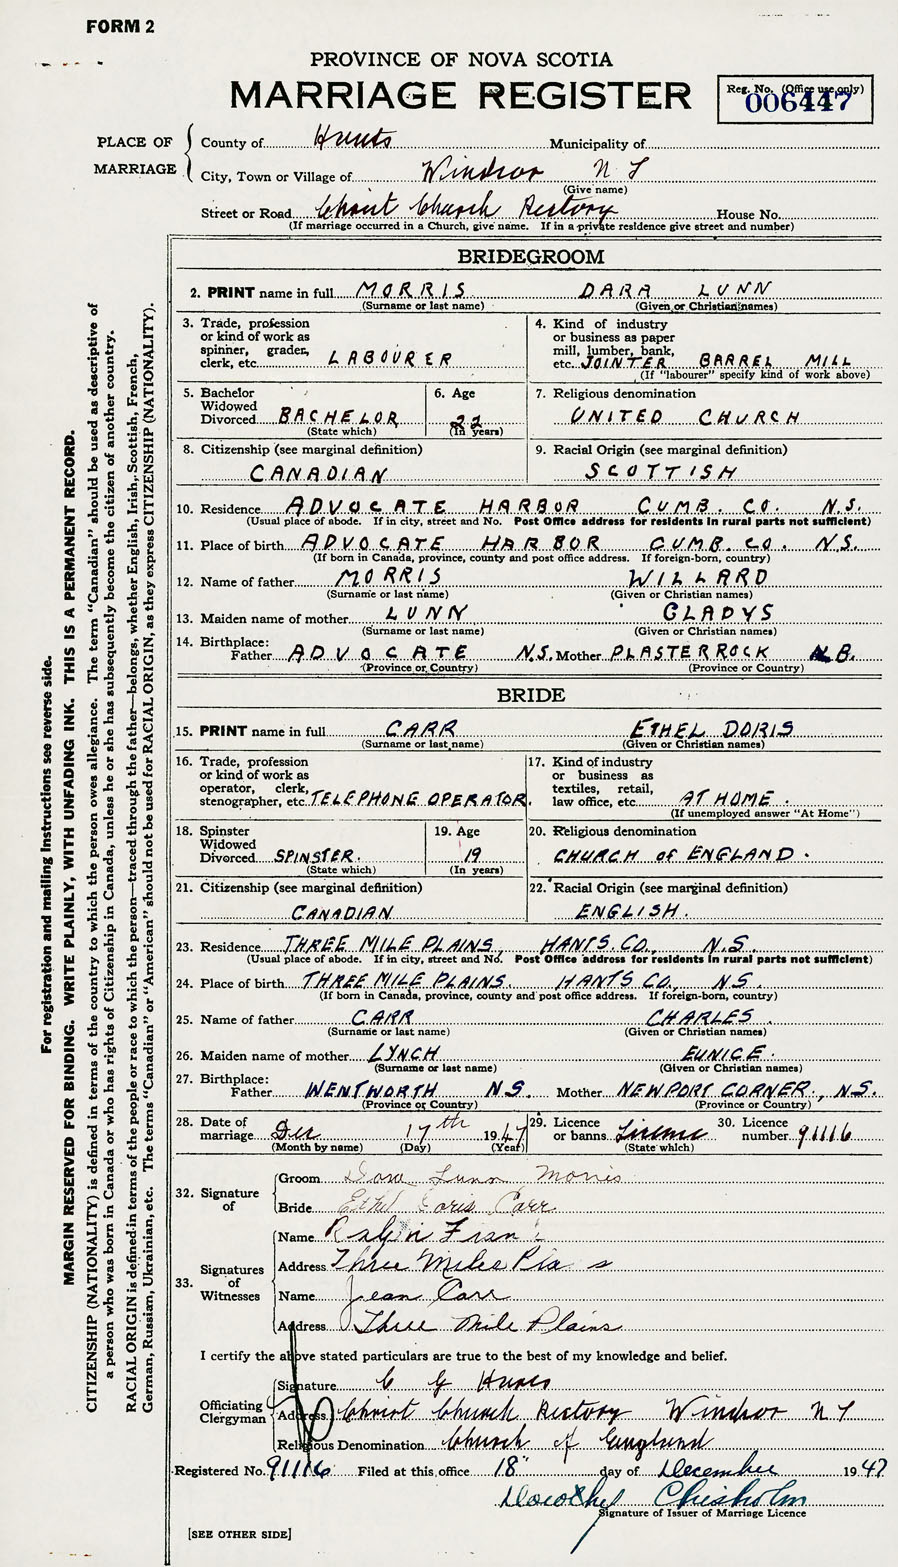 FORM 2
PROVINCE OF NOVA SCOTIA
MARRIAGE REGISTER
Reg. No. (Office use only)
006447
PLACE OF MARRIAGE
County of Hants Municipality of
City, Town or Village of Windsor N S
(Give name)
Street or Road Christ Church Rectory House No.
(If marriage occurred in a Church, give name. If in a private residence give street and number)
BRIDEGROOM
2. PRINT name in full MORRIS DARA LUNN
(Surname or last name) (Given or Christian names)
3. Trade, profession or kind of work as spinner, grader, clerk, etc. LABOURER
4. Kind of industry or business as paper mill, lumber, bank, etc. JOINTER BARREL MILL
(If "labourer" specify kind of work above)
5. Bachelor Widowed Divorced BACHELOR
(State which)
6. Age 22
(In years)
7. Religious denomination
UNITED CHURCH
8. Citizenship (see marginal definition)
CANADIAN
9. Racial Origin (see marginal definition)
SCOTTISH
10. Residence ADVOCATE HARBOR CUMB. CO. N.S.
(Usual place of abode. If in city, street and No. Post Office address for residents in rural parts not sufficient)
11. Place of birth ADVOCATE HARBOR CUMB. CO. N.S.
(If born in Canada, province, county and post office address. If foreign-born, country)
12. Name of father MORRIS WILLARD
(Surname or last name) (Given or Christian names)
13. Maiden name of mother LUNN GLADYS
(Surname or last name) (Given or Christian names)
14. Birthplace:
Father ADVOCATE N.S. Mother PLASTERROCK N.B.
(Province or Country) (Province or Country)
BRIDE
15. PRINT name in full CARR ETHEL DORIS
(Surname or last name) (Given or Christian names)
16. Trade, profession or kind of work as operator, clerk, stenographer, etc. TELEPHONE OPERATOR.
17. Kind of industry or business as textiles, retail, law office, etc. AT HOME.
(If unemployed answer "At Home")
18. Spinster Widowed Divorced SPINSTER.
(State which)
19. Age 19
(In years)
20. Religious denomination
CHURCH of ENGLAND.
21. Citizenship (see marginal definition)
CANADIAN
22. Racial Origin (see marginal definition)
ENGLISH.
23. Residence THREE MILE PLAINS, HANTS. CO., N.S.
(Usual place of abode. If in city, street and No. Post Office address for residents in rural parts not sufficient)
24. Place of birth THREE MILE PLAINS. HANTS CO., N.S.
(If born in Canada, province, county and post office address. If foreign-born, country)
25. Name of father CARR CHARLES.
(Surname or last name) (Given or Christian names)
26. Maiden name of mother LYNCH EUNICE.
(Surname or last name) (Given or Christian names)
27. Birthplace:
Father WENTWORTH N.S. Mother NEWPORT CORNER, N.S.
(Province or Country) (Province or Country)
28. Date of marriage Dec 17th 1947
(Month by name) (Day) (Year)
29. Licence or banns License
(State which)
30. Licence number 91116
32. Signature of
Groom Dara Lunn Morris
Bride Ethel Doris Carr
33. Signatures of Witnesses
Name
Address Three Miles Pla s
Name Jean Carr
Address Three Mile Plains
I certify the above stated particulars are true to the best of my knowledge and belief.
Officiating Clergyman
Signature C G
Address Christ Church Rectory Windsor N S
Religious Denomination Church of England
Registered No. 91116 Filed at this office 18" day of December 1947
Dorothy Chisholm
Signature of Issuer of Marriage Licence
[SEE OTHER SIDE]
For registration and mailing instructions see reverse side.
MARGIN RESERVED FOR BINDING. WRITE PLAINLY, WITH UNFADING INK. THIS IS A PERMANENT RECORD.
CITIZENSHIP (NATIONALITY) is defined in terms of the country to which the person owes allegiance. The term "Canadian" should be used as descriptive of
a person who was born in Canada or who has rights of Citizenship in Canada, unless he or she has subsequently become the citizen of another country.
RACIAL ORIGIN is defined in terms of the people or race to which the person—traced through the father—belongs, whether English, Irish, Scottish, French,
German, Russian, Ukrainian, etc. The terms "Canadian" or "American" should not be used for RACIAL ORIGIN, as they express CITIZENSHIP (NATIONALITY).